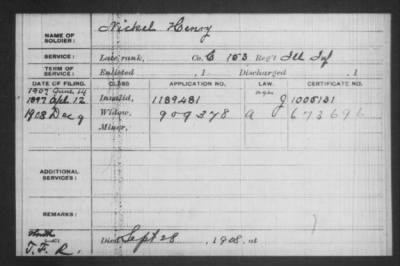 NAME OF SOLDIER: Nickel Henry
SERVICE: Late rank, Co. C 153 Reg't Ill Inf
TERM OF SERVICE: Enlisted , 1 Discharged , 1
DATE OF FILING. CLASS APPLICATION NO. LAW. CERTIFICATE NO.
1907
1897 Apl. 12 Invalid, 1189481 J 1005131
1908 Dec 9 Widow, 909378 a
Minor,
ADDITIONAL SERVICES:
REMARKS:
T. F. R. Died Sept 28 , 1908, at